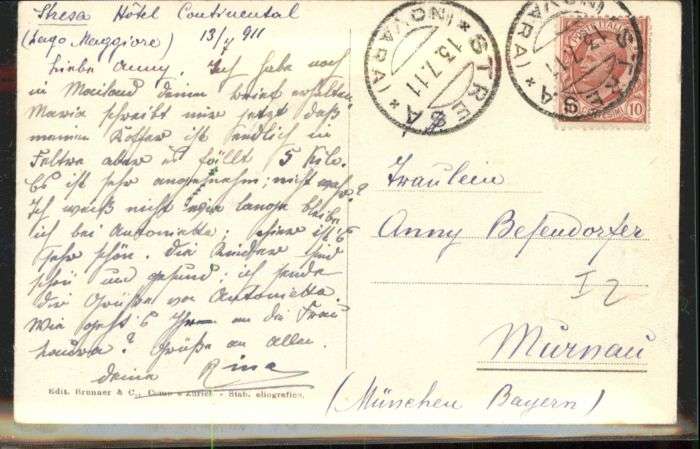 Stresa Hôtel Continental
(Lago Maggiore) 13/7 911
Liebe Anny. Ich habe noch
in Mailand deinen brief erhalten
Maria schreibt mir jetzt daß
meinen Koffer ist endlich in
Feltre aber es fällt 5 Kilo.
Es ist sehr angenehm; nicht wahr?
Ich weiß nicht wie lange bleibe
ich bei Antonietta; hier ist es
sehr schön. Die Kinder sind
schön und gesund; ich sende
die Grüße von Antonietta.
Wie geht es an die Frau
Grüße an allen.
deine Rina
Edit. Brunner & C., Como e Zurict - Stab. eliografico.
STRESA * (NOVARA) *
13.7.11
STRESA * (NOVARA) *
13.7.11
POSTE ITALIANE
10
Fräulein
Anny Befendorfer
I 2
Murnau
(München Bayern)